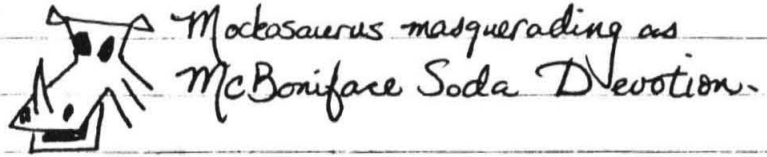 Mockosaurus masquerading as
McBoniface Soda Devotion.